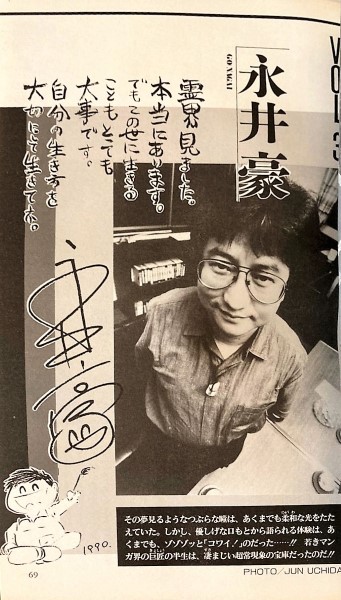 VOL 3
永井豪
GO NAGAI
霊界見ました。
本当にあります。
でもこの世に生きる
こともとても
大事です。
自分の生き方を
大切にして生きてネ。
永井豪
1990.
その夢見るようなつぶらな瞳は、あくまでも柔和な光をた
たえていた。しかし、優しげな口もとから語られる体験は、あ
くまでも、ゾゾゾッと「コワイ!」のだった……!! 若きマン
ガ界の巨匠の半生は、凄まじい超常現象の宝庫だったのだ!!
69
PHOTO/JUN UCHIDA